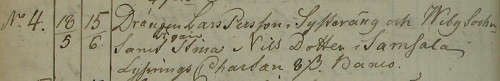 No. 4. 18 15 Drängen Lars Persson i Systeräng och Wilz Sockn
5 6. samt Pigan Stina Nils Dotter i Samsala
Lysnings Chartan 8 ß. Banco.